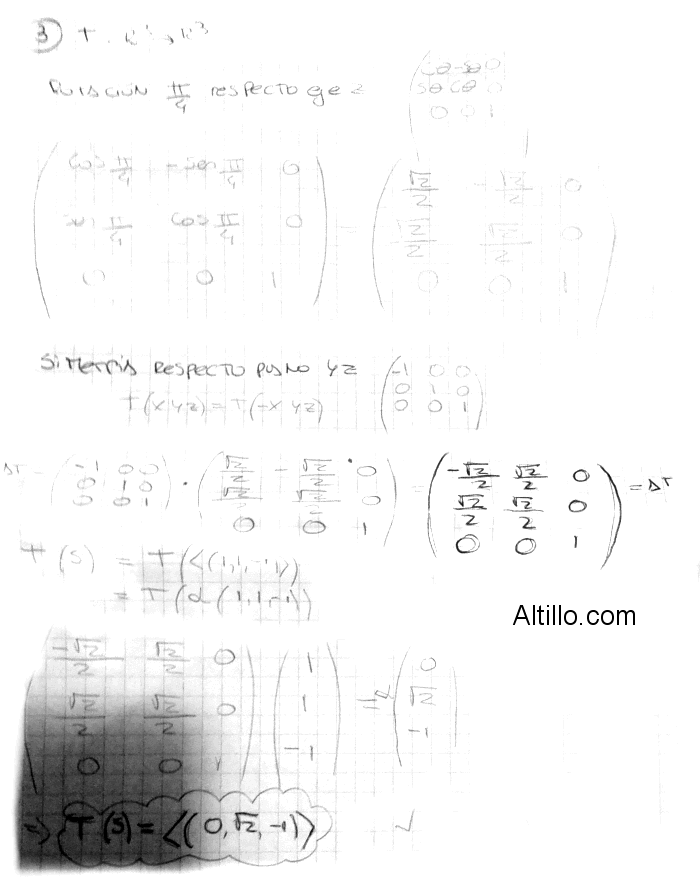 ③ T: R³→R³
ROTACIÓN π/4 RESPECTO eje z (cθ -sθ 0
sθ cθ 0
0 0 1)
(cos π/4 -sen π/4 0
sen π/4 cos π/4 0
0 0 1) = (√2/2 -√2/2 0
√2/2 √2/2 0
0 0 1)
SIMETRÍA RESPECTO PLANO yz (-1 0 0
0 1 0
0 0 1)
T(x y z) = T(-x y z)
AT = (-1 0 0
0 1 0
0 0 1) · (√2/2 -√2/2 0
√2/2 √2/2 0
0 0 1) = (-√2/2 √2/2 0
√2/2 √2/2 0
0 0 1) = AT
T(S) = T(<(1,1,-1)>)
= T(α(1,1,-1))
Altillo.com
(-√2/2 √2/2 0
√2/2 √2/2 0
0 0 1) (1
1
-1) = α (0
√2
-1)
=> T(S) = <(0,√2,-1)> ✓